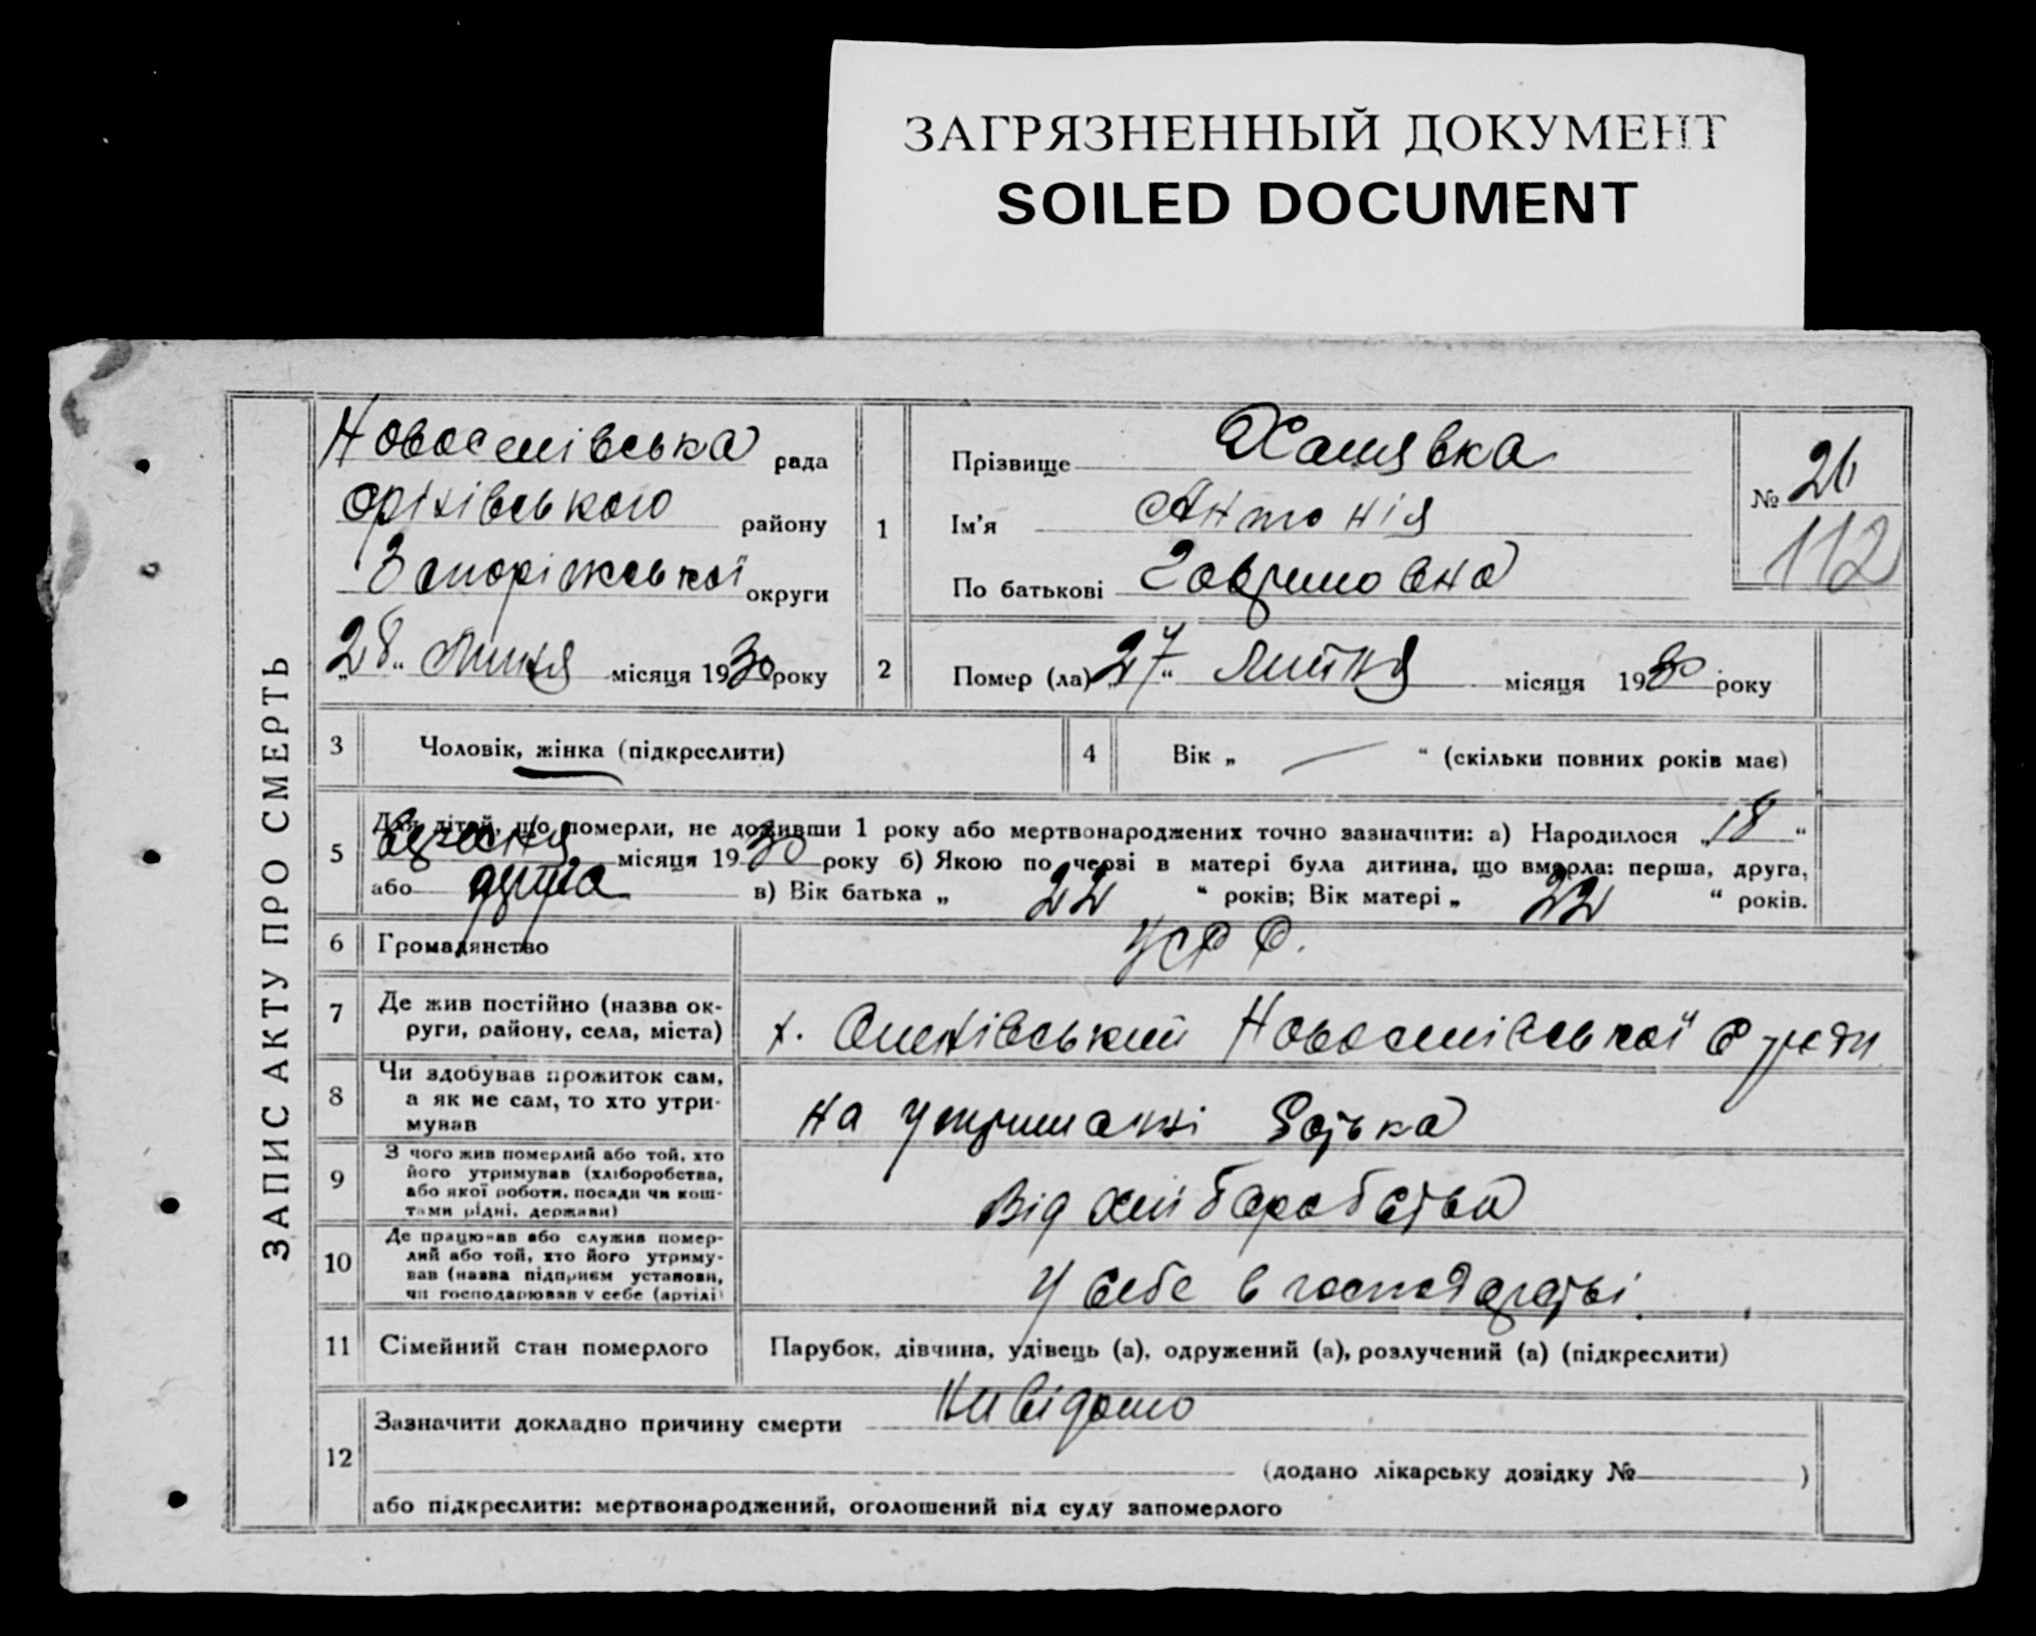 ЗАГРЯЗНЕННЫЙ ДОКУМЕНТ
SOILED DOCUMENT
ЗАПИС АКТУ ПРО СМЕРТЬ
рада
Оріхівського району
Запоріжської округи
„28“ липня місяця 1930 року
1
Прізвище
Ім'я Антонія
По батькові
№ 26
112
2
Помер (ла) „27“ липня місяця 1930 року
3
Чоловік, жінка (підкреслити)
4
Вік „ — “ (скільки повних років має)
5
Для дітей, що померли, не доживши 1 року або мертвонароджених точно зазначити: а) Народилося „18“
місяця 1930 року б) Якою по черзі в матері була дитина, що вмерла: перша, друга,
або друга в) Вік батька „22“ років; Вік матері „22“ років.
6
Громадянство
УСРР.
7
Де жив постійно (назва ок-
руги, району, села, міста)
х. Новоселівської с/ради
8
Чи здобував прожиток сам,
а як не сам, то хто утри-
мував
на утриманні батька
9
З чого жив померлий або той, хто
його утримував (хліборобства,
або якої роботи, посади чи кош-
тами рідні, держави)
Від хліборобства
10
Де працював або служив помер-
лий або той, хто його утриму-
вав (назва підприєм установи,
чи господарював у себе (артілі)
У себе в господарстві.
11
Сімейний стан померлого
Парубок, дівчина, удівець (а), одружений (а), розлучений (а) (підкреслити)
12
Зазначити докладно причину смерти Нивідомо
(додано лікарську довідку № )
або підкреслити: мертвонароджений, оголошений від суду запомерлого